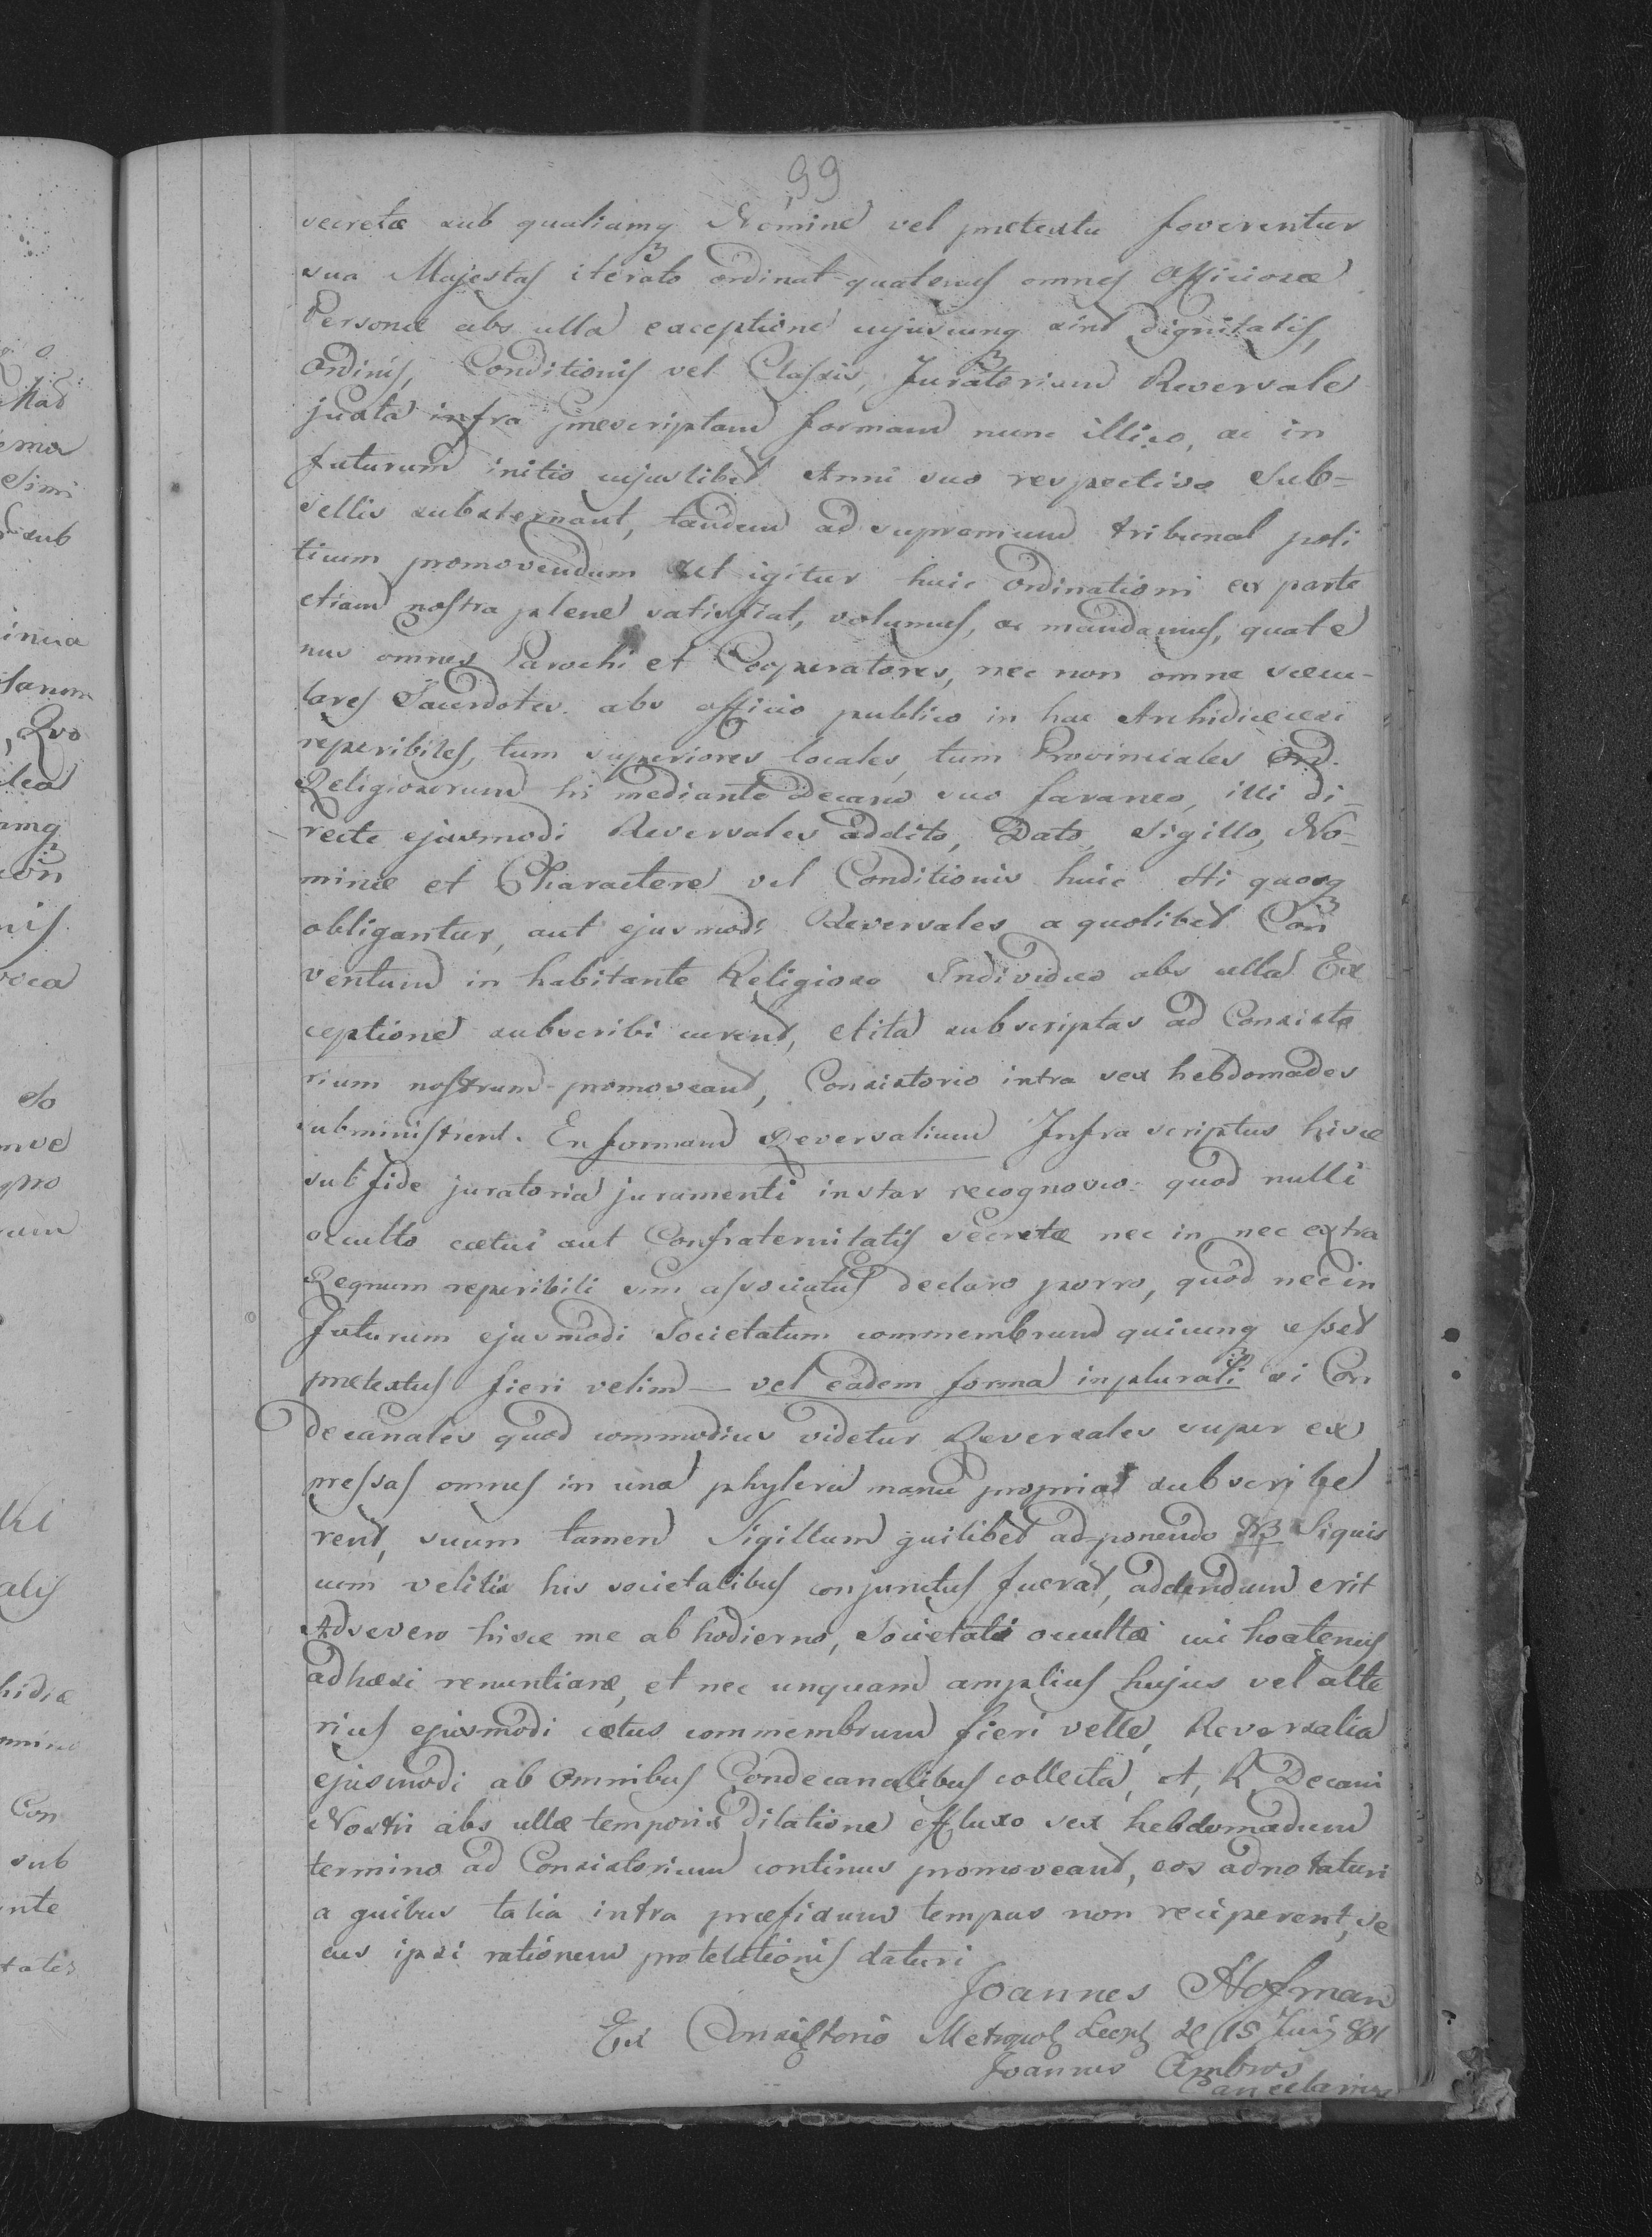 99
secretæ sub qualiumq Nomine vel prætextu foverentur
sua Majestas iterato ordinat quatenus omnes Officiosæ
Personæ abs ulla exceptione cujuscunq sint dignitatis,
Ordinis, Conditionis vel Classis, Juratorium Reversale
juxta infra præscriptam formam nunc illico, ac in
futurum initio cujuslibet Anni suo respectivo Sub=
selliis substernant, tandem ad supremum tribunal poli
ticum promovendum Ut igitur huic Ordinationi ex parte
etiam nostra plene satisfiat, volumus, ac mandamus, quate
nus omnes Parochi et Cooperatores, nec non omne sæcu-
lares Sacerdotes abs officio publico in hac Archidiœcesi
reperibiles, tum superiores locales, tum Provinciales Ord.
Religiosorum hi mediante Decano suo foraneo, illi di-
recte ejusmodi Reversales addito, Dato, Sigillo, No-
mine et Charactere vel Conditionis huic Hi quoq
obligantur, aut ejusmodi Reversales a quolibet Con
ventum in habitante Religioso Individuo abs ulla Ex
ceptione subscribi curent, et ita subscriptas ad Consisto
rium nostrum promoveant, Consistorio intra sex hebdomades
subministrent. En formam Reversalium Infra scriptus hisce
sub fide juratoria juramenti instar recognosco: quod nulli
occulto cœtui aut Confraternitatis secretæ nec in nec extra
Regnum reperibili sim associatus declaro porro, quod nec in
futurum ejusmodi Societatum commembrum quicunq esset
prætextus fieri velim — vel eadem forma inplurali si Con
decanales quod commodius videtur Reversales super ex
pressas omnes in una phylera manu propria subscribe
rent, suum tamen Sigillum quilibet adponendo NB Siquis
cum vetitis his societatibus conjunctus fuerat, addendum erit
Adsevero hisce me ab hodierno, Societati occultæ cui hoctenus
adhæsi renuntiare, et nec unquam amplius hujus vel alte
rius ejusmodi cœtus commembrum fieri velle, Reversalia
ejusmodi ab Omnibus Condecanalibus collecta, A, R, Decani
Nostri abs ulla temporis dilatione effluxo sex hebdomadum
termino ad Consistorium continuo promoveant, eos adnotaturi
a quibus talia intra præfixum tempus non reciperent, se
cus ipsi rationem protelationis daturi
Joannes Hofman
Ex Consistorio Metropol Leopl 15 Junij 801
Joannes Ambros
Cancelarius